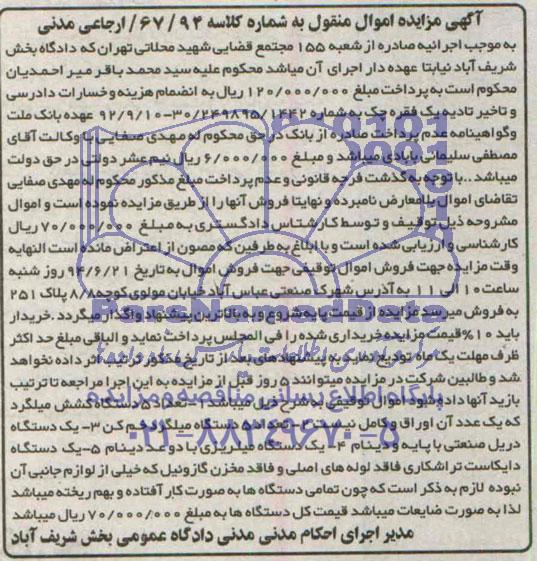 آگهی مزایده اموال منقول به شماره کلاسه ۹۴ / ۶۷ / ارجاعی مدنی
به موجب اجرائیه صادره از شعبه ۱۵۵ مجتمع قضایی شهید محلاتی تهران که دادگاه بخش
شریف آباد نیابتا عهده دار اجرای آن میباشد محکوم علیه سید محمد باقر میر احمدیان
محکوم است به پرداخت مبلغ ۱۲۰/۰۰۰/۰۰۰ ریال به انضمام هزینه و خسارات دادرسی
و تاخیر تادیه یک فقره چک به شماره ۳۰/۲۴۹۸۹۵/۱۴۴۲-۹۲/۹/۱۰ عهده بانک ملت
وگواهینامه عدم پرداخت صادره از بانک در حق محکوم له مهدی صفایی با وکالت آقای
مصطفی سلیمانی بابادی میباشد و مبلغ ۶/۰۰۰/۰۰۰ ریال نیم عشر دولتی در حق دولت
میباشد..با توجه به گذشت فرجه قانونی و عدم پرداخت مبلغ مذکور محکوم له مهدی صفایی
تقاضای اموال بلامعارض نامبرده و نهایتا فروش آنها را از طریق مزایده نموده است و اموال
مشروحه ذیل توقیف و توسط کارشناس دادگستری به مبلغ ۷۰/۰۰۰/۰۰۰ ریال
کارشناسی و ارزیابی شده است و با ابلاغ به طرفین که مصون از اعتراض مانده است النهایه
وقت مزایده جهت فروش اموال توقیفی جهت فروش اموال به تاریخ ۹۴/۶/۲۱ روز شنبه
ساعت ۱۰ الی ۱۱ به آدرس شهرک صنعتی عباس آباد خیابان مولوی کوچه ۸/۸ پلاک ۲۵۱
به فروش میرسد مزایده از قیمت پایه شروع و به بالاترین پیشنهاد واگذار میگردد .خریدار
باید ۱۰% قیمت مزایده خریداری شده را فی المجلس پرداخت نماید و الباقی مبلغ حد اکثر
ظرف مهلت یک ماه تودیع نماید به پیشنهادهای بعد از تاریخ مذکور ترتیب اثر داده نخواهد
شد و طالبین شرکت در مزایده میتوانند ۵ روز قبل از مزایده به این اجرا مراجعه تا ترتیب
بازید آنها داده شود اموال توقیفی به شرح ذیل میباشد ۱- تعداد ۵ دستگاه کشش میلگرد
که یک عدد آن اوراق و کامل نیست ۲- تعداد ۵ دستگاه میلگرد خم کن ۳- یک دستگاه
دریل صنعتی با پایه و دینام ۴- یک دستگاه میلریزی با دو عدد دینام ۵- یک دستگاه
دایکاست تراشکاری فاقد لوله های اصلی و فاقد مخزن گازوئیل که خیلی از لوازم جانبی آن
نبوده لازم به ذکر است که چون تمامی دستگاه ها به صورت کار آفتاده و بهم ریخته میباشد
لذا به صورت ضایعات میباشد قیمت کل دستگاه ها به مبلغ ۷۰/۰۰۰/۰۰۰ ریال میباشد
مدیر اجرای احکام مدنی مدنی دادگاه عمومی بخش شریف آباد
ParsNamadData
پایگاه اطلاع رسانی مناقصه و مزایده
۰۲۱-۸۸۳۴۹۶۷۰-۵